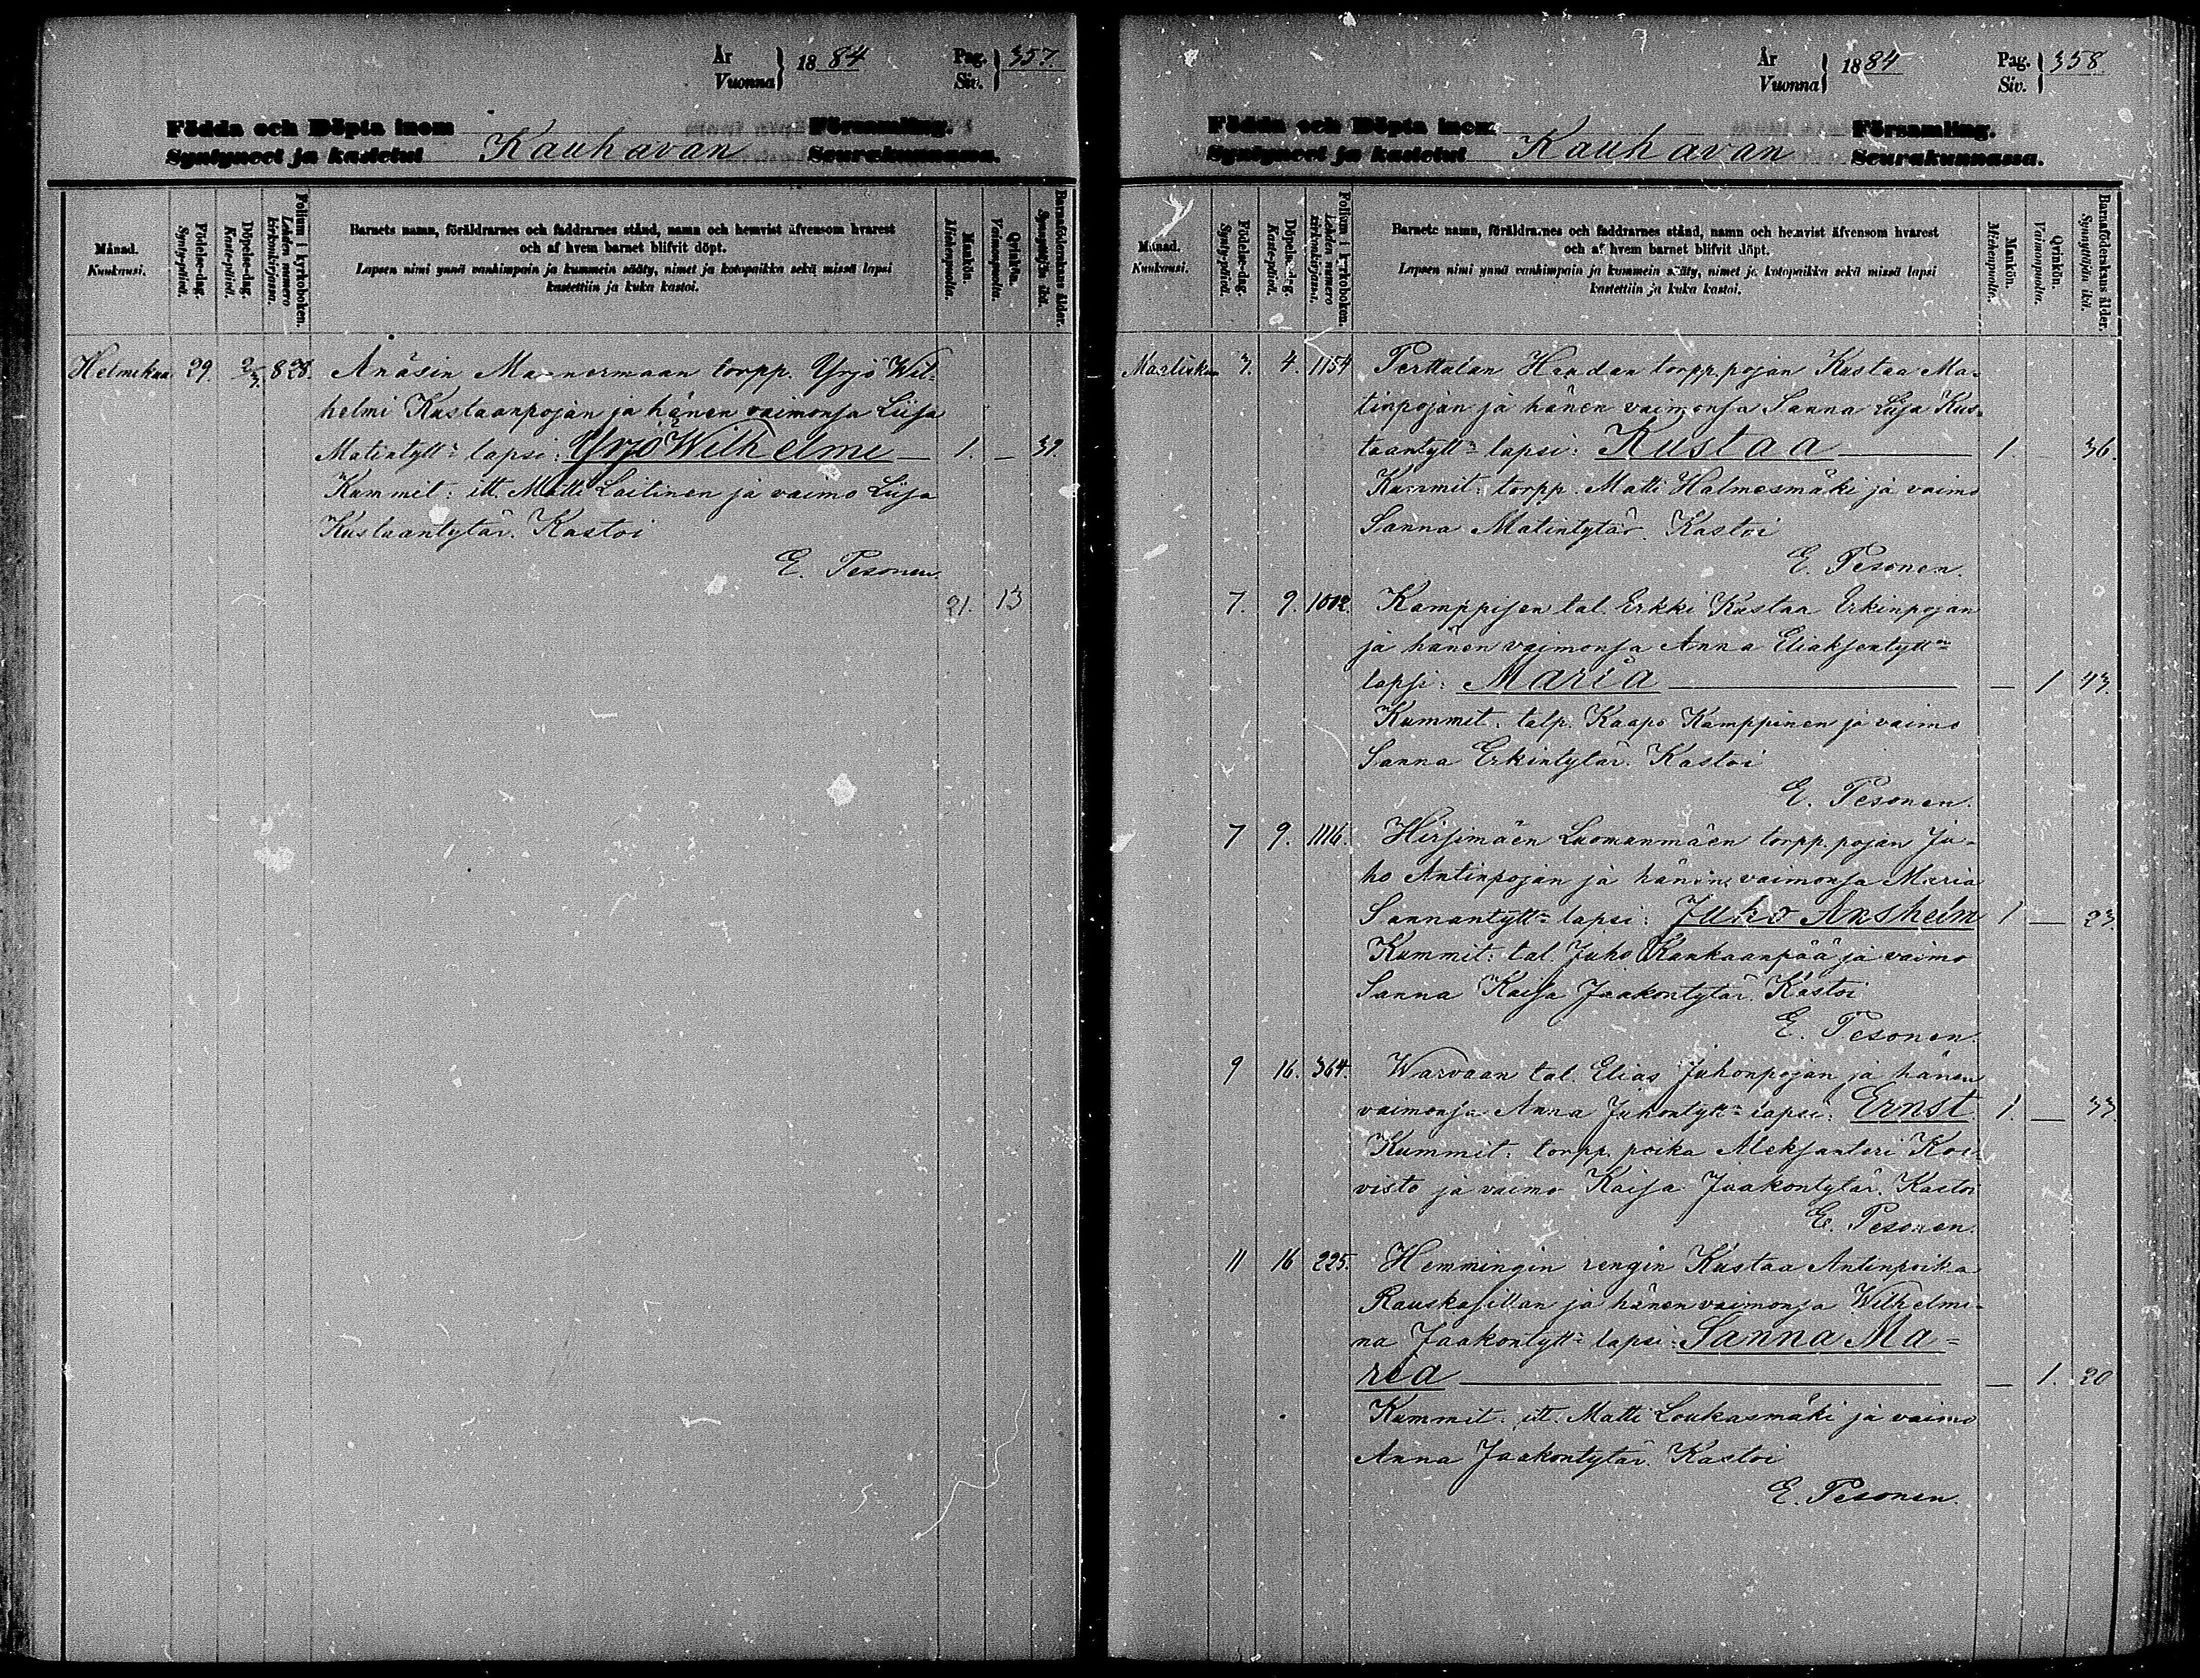 År
Vuonna } 1884 Pag.
Siv. } 357.
Födda och Döpta inom Församling.
Syntyneet ja kastetut Kauhavan Seurakunnassa.
Månad.
Kuukausi.
Födelse-dag.
Synty-päivä.
Döpelse-dag.
Kaste-päivä.
Folium i kyrkoboken.
Lehden numero kirkonkirjassa.
Barnets namn, föräldrarnes och faddrarnes stånd, namn och hemvist äfvensom hvarest
och af hvem barnet blifvit döpt.
Lapsen nimi ynnä vanhimpain ja kummein sääty, nimet ja kotopaikka sekä missä lapsi
kastettiin ja kuka kastoi.
Mankön.
Miehenpuolia.
Qvinkön.
Vaimonpuolia.
Barnaföderskans ålder.
Synnyttäjän ikä.
Helmikuu 29. 2/3. 828. Änäsin Mannermaan torpp. Yrjö Wil-
helmi Kustaanpojan ja hänen vaimonsa Liisa
Matintytt:n lapsi: Yrjö Wilhelmi — 1. — 39.
Kummit: itt. Matti Laitinen ja vaimo Liisa
Kustaantytär. Kastoi
E. Pesonen
21. 13
År
Vuonna } 1884 Pag.
Siv. } 358
Födda och Döpta inom Församling.
Syntyneet ja kastetut Kauhavan Seurakunnassa.
Månad.
Kuukausi.
Födelse-dag.
Synty-päivä.
Döpelse-dag.
Kaste-päivä.
Folium i kyrkoboken.
Lehden numero kirkonkirjassa.
Barnets namn, föräldrarnes och faddrarnes stånd, namn och hemvist äfvensom hvarest
och af hvem barnet blifvit döpt.
Lapsen nimi ynnä vanhimpain ja kummein sääty, nimet ja kotopaikka sekä missä lapsi
kastettiin ja kuka kastoi.
Mankön.
Miehenpuolia.
Qvinkön.
Vaimonpuolia.
Barnaföderskans ålder.
Synnyttäjän ikä.
Maalisku 3. 4. 1154 Perttulan torpp. pojan Kustaa Ma-
tinpojan ja hänen vaimonsa Sanna Liisa Kus-
taantytt:n lapsi: Kustaa — 1. — 36.
Kummit: torpp. Matti Halmesmäki ja vaimo
Sanna Matintytär. Kastoi
E. Pesonen.
7. 9. 1002. Kamppisen tal. Erkki Kustaa Erkinpojan
ja hänen vaimonsa Anna Eliaksentytt:n
lapsi: Maria — — 1 43.
Kummit: talp. Kaapo Kamppinen ja vaimo
Sanna Erkintytär. Kastoi
E. Pesonen.
7 9. 1116. Hirsimäen Luomanmäen torpp. pojan Ju-
ho Antinpojan ja hänen vaimonsa Maria
Sannantytt:n lapsi: Juho Ansheim 1 — 23.
Kummit: tal. Juho Kankaanpää ja vaimo
Sanna Kaisa Jaakontytär. Kastoi
E. Pesonen.
9 16. 364. Warvaan tal. Elias Juhonpojan ja hänen
vaimonsa Anna Juhontytt:n lapsi: Ernst 1. — 33.
Kummit: torpp. poika Aleksanteri Koi-
visto ja vaimo Kaisa Jaakontytär. Kastoi
E. Pesonen.
11 16 225. Hemmingin rengin Kustaa Antinpoika
Rauskasillan ja hänen vaimonsa Wilhelmi-
na Jaakontytt:n lapsi: Sanna Ma-
ria — — 1. 20
Kummit: itt. Matti Loukasmäki ja vaimo
Anna Jaakontytär. Kastoi
E. Pesonen.